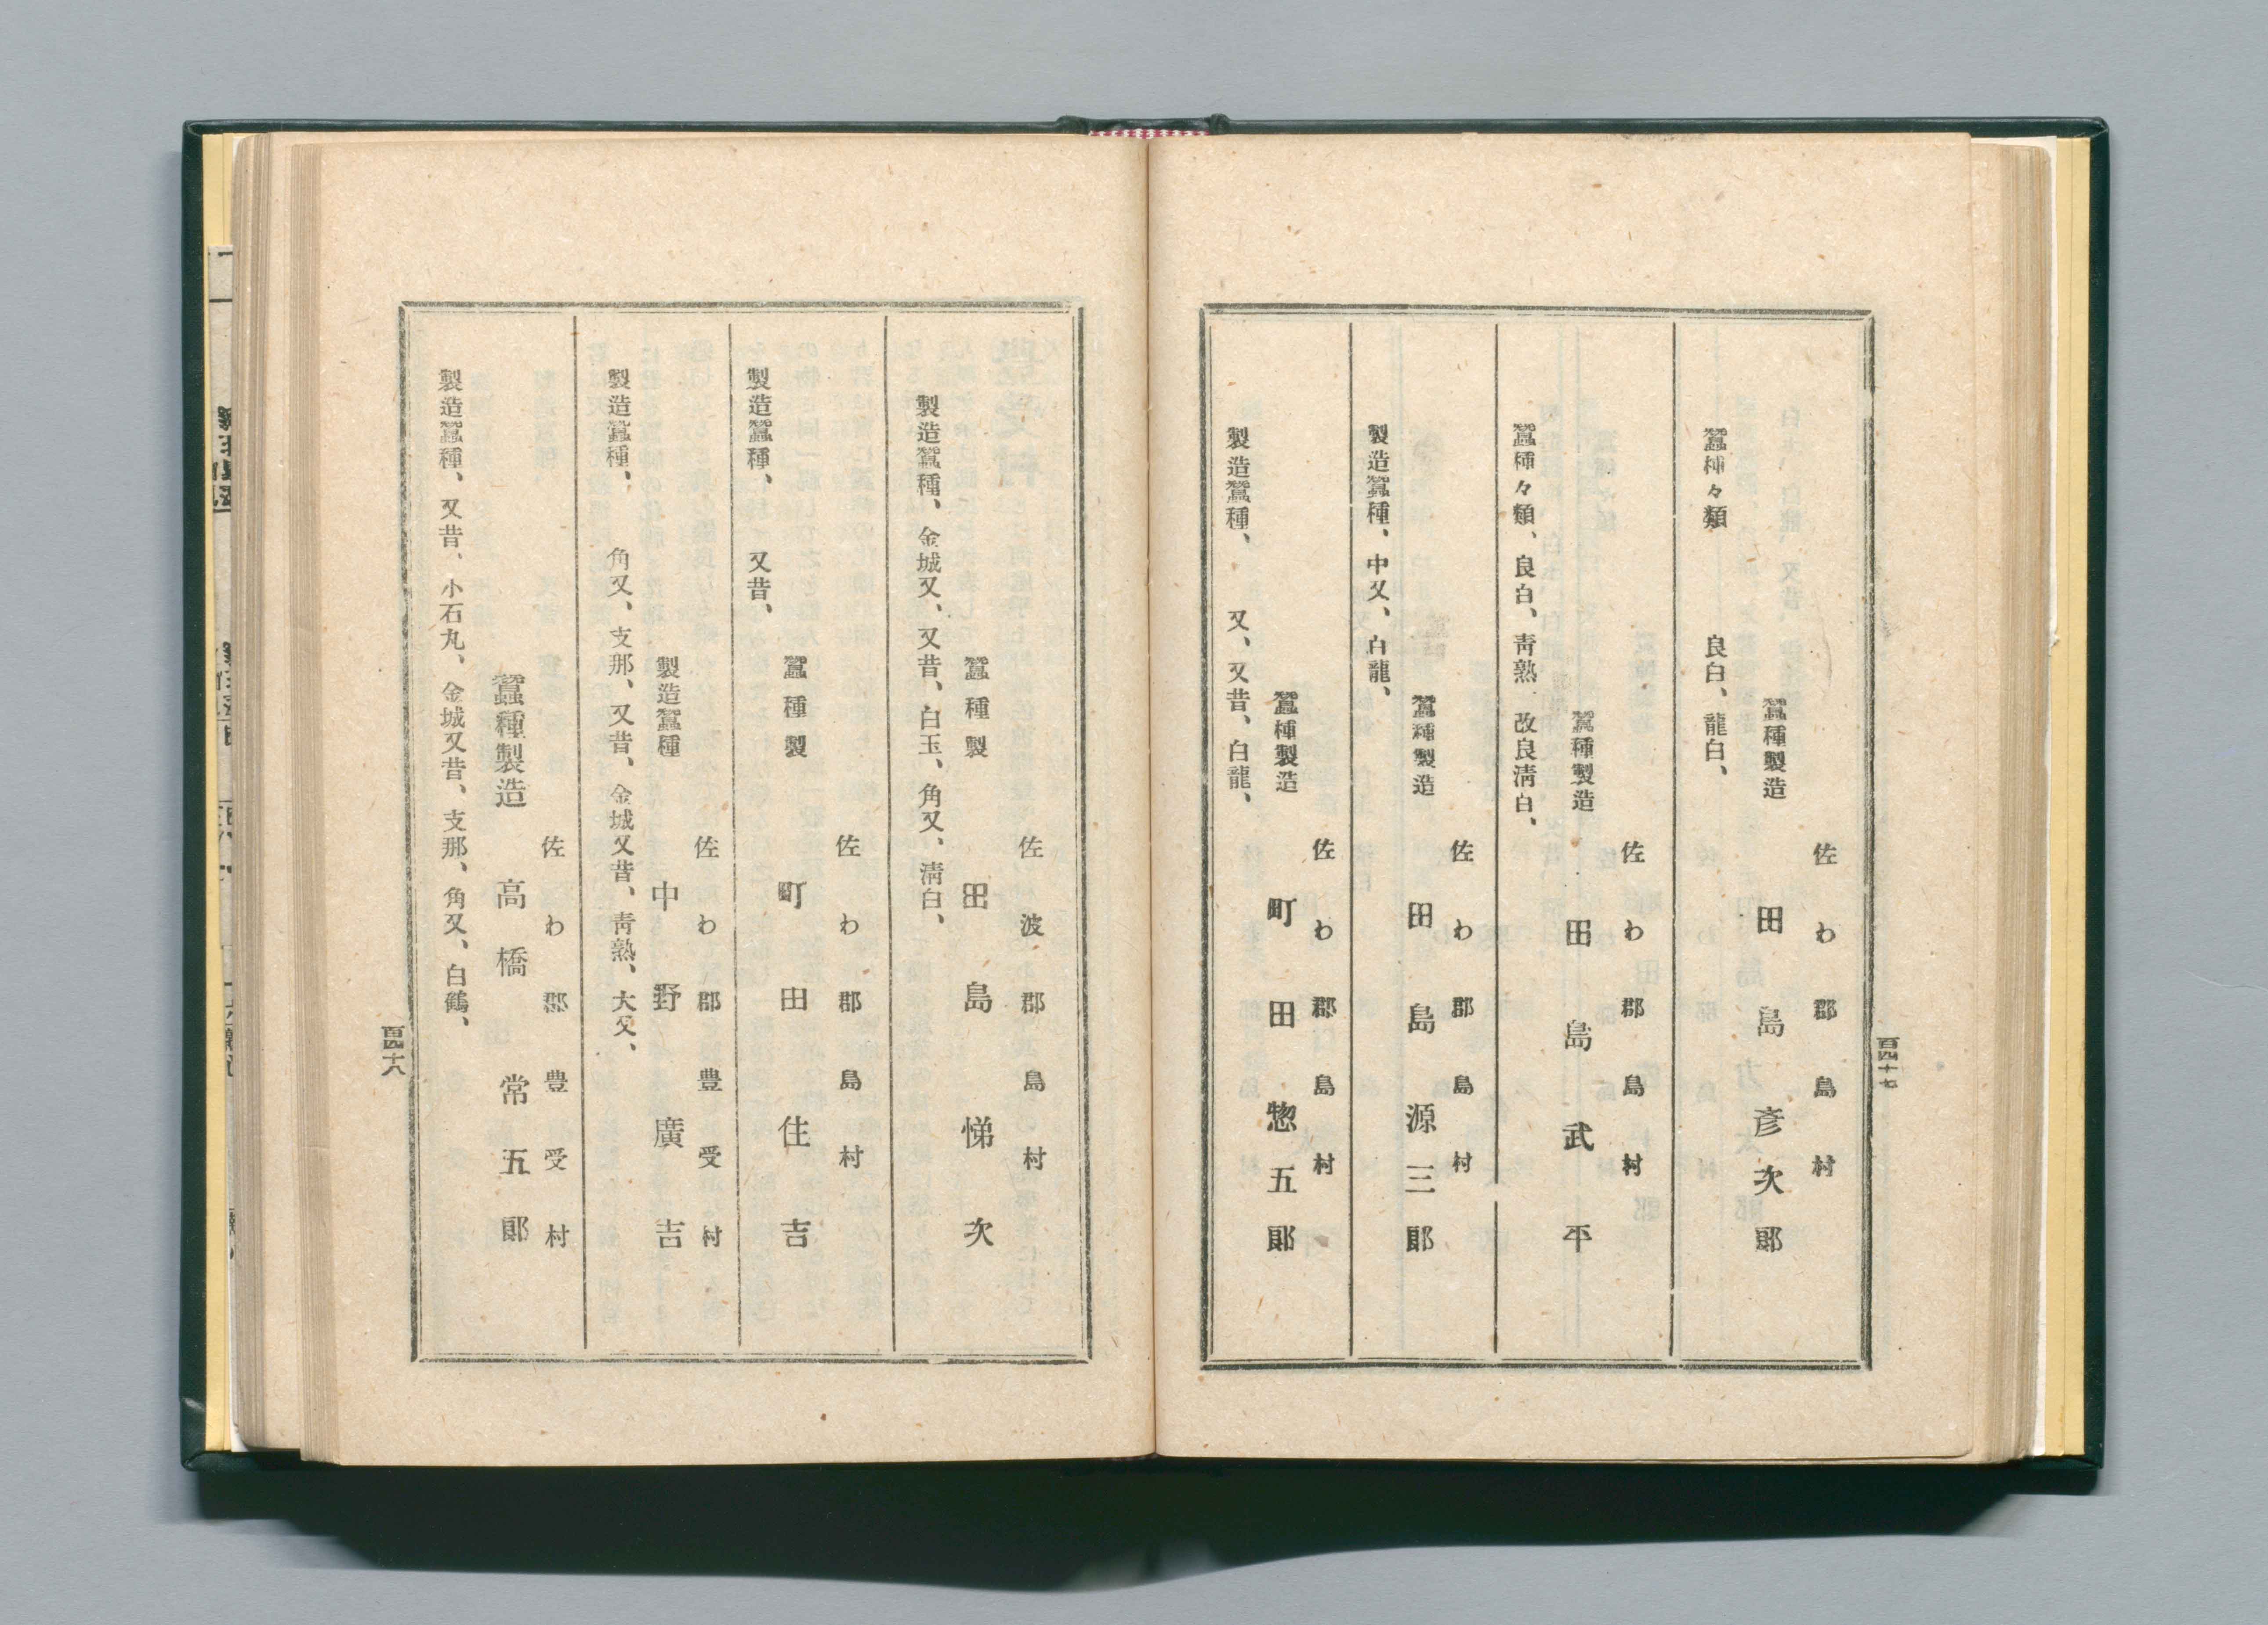 百四十七
佐わ郡島村
蠶種製造　田島彦次郎
蠶種々類　良白、龍白、
佐わ郡島村
蠶種製造　田島武平
蠶種々類、良白、靑熟、改良淸白、
佐わ郡島村
蠶種製造　田島源三郎
製造蠶種、中又、白龍、
佐わ郡島村
蠶種製造　町田惣五郎
製造蠶種、又、又昔、白龍、
佐波郡島村
蠶種製　田島悌次
製造蠶種、金城又、又昔、白玉、角又、淸白、
佐わ郡島村
蠶種製　町田住吉
製造蠶種、又昔、
佐わ郡豊受村
製造蠶種　中野廣吉
製造蠶種、角又、支那、又昔、金城又昔、靑熟、大又、
佐わ郡豊受村
蠶種製造　高橋常五郎
製造蠶種、又昔、小石丸、金城又昔、支那、角又、白鶴、
百四十八